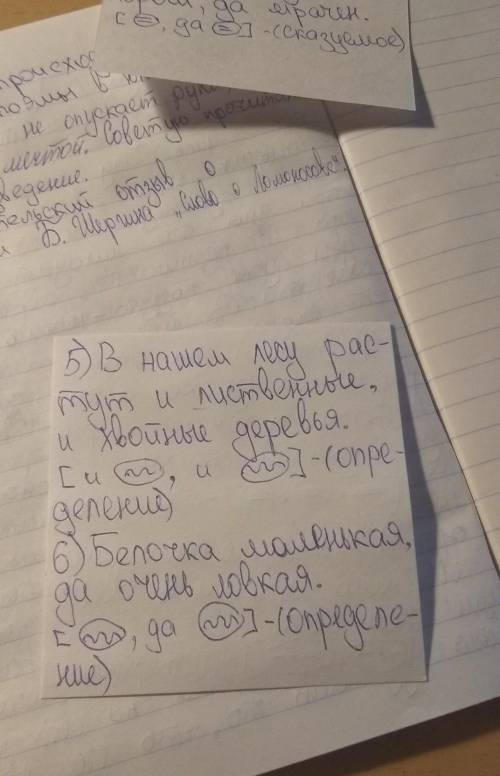 да мрачен.
[ , да ] - (сказуемое)
поэмы в
не опускает руки
мечтой. Советую прочитать
ведение.
отзыв о
Б. Шергина "Слово о Ломоносове".
5) В нашем лесу рас-
тут и лиственные,
и хвойные деревья.
[и , и ] - (опре-
деление)
6) Белочка маленькая,
да очень ловкая.
[ , да ] - (определе-
ние)